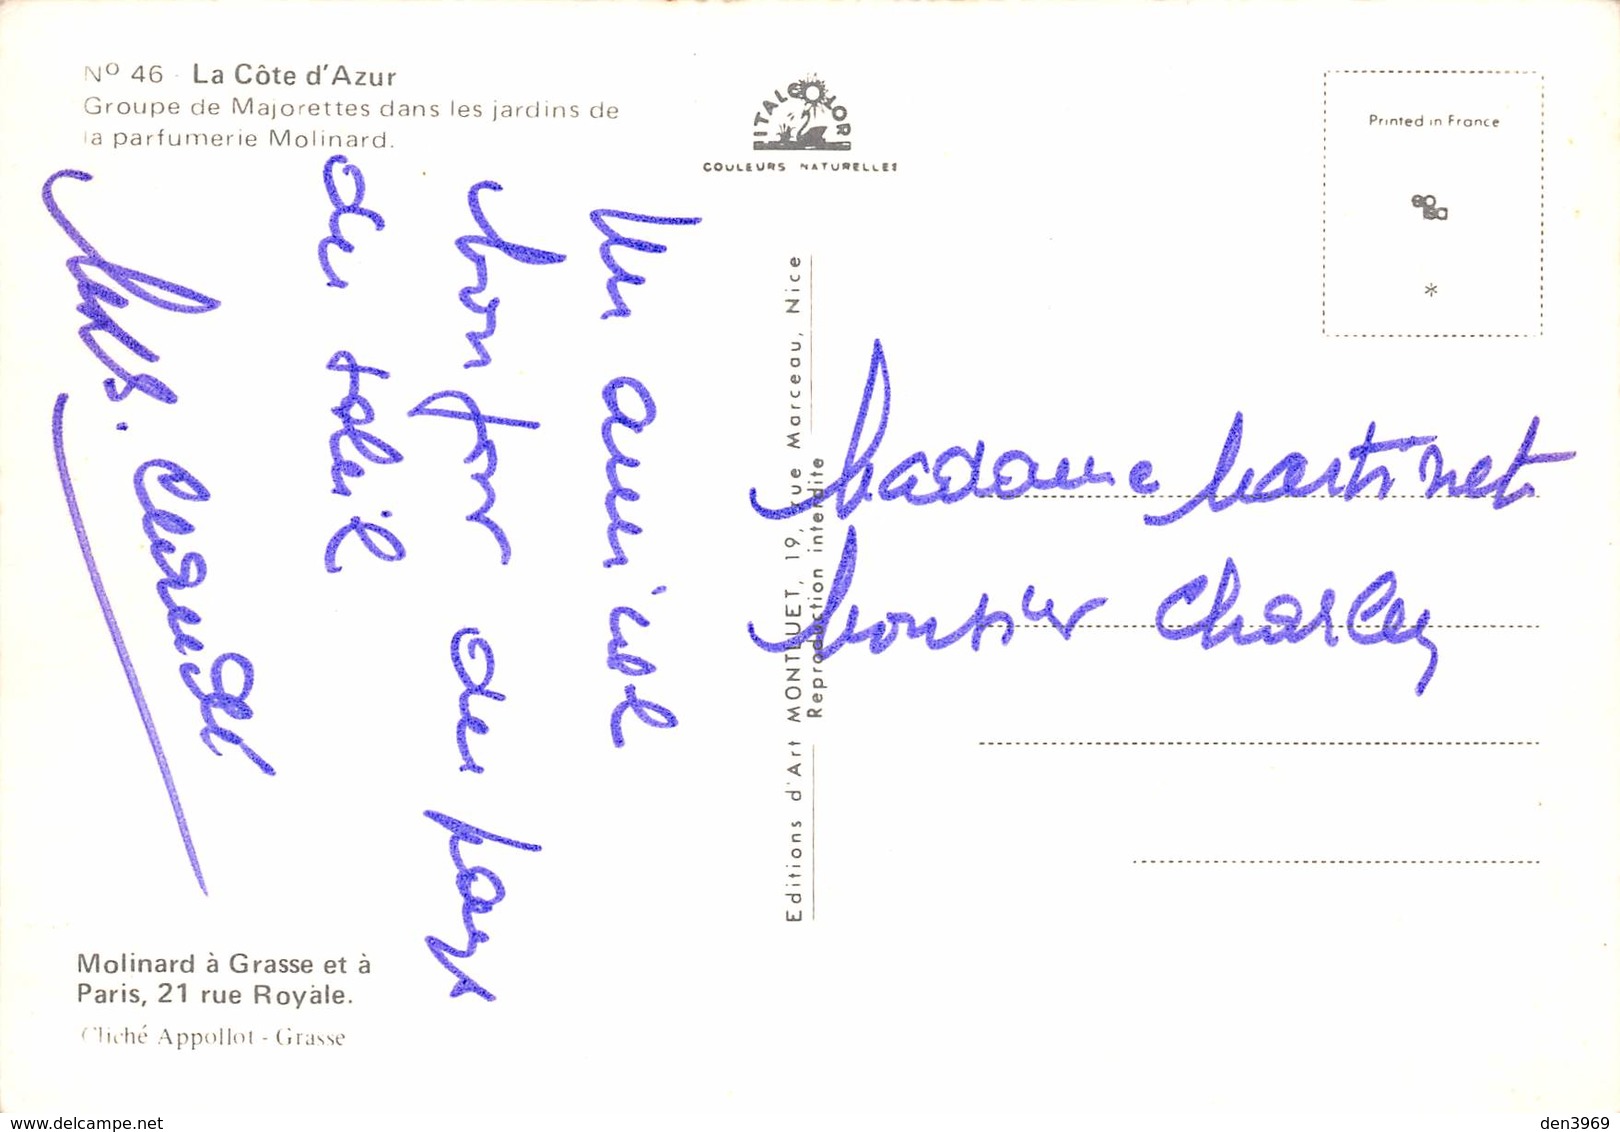 Nº 46 - La Côte d'Azur
Groupe de Majorettes dans les jardins de
la parfumerie Molinard.
ITALCOLOR
COULEURS NATURELLES
Printed in France
*
Un amical
bonjour du pays
du soleil
Editions d'Art MONTLUET, 19, rue Marceau, Nice
Reproduction interdite
Madame Martinet
Monsieur Charley
Molinard à Grasse et à
Paris, 21 rue Royale.
Cliché Appollot - Grasse
www.delcampe.net
den3969